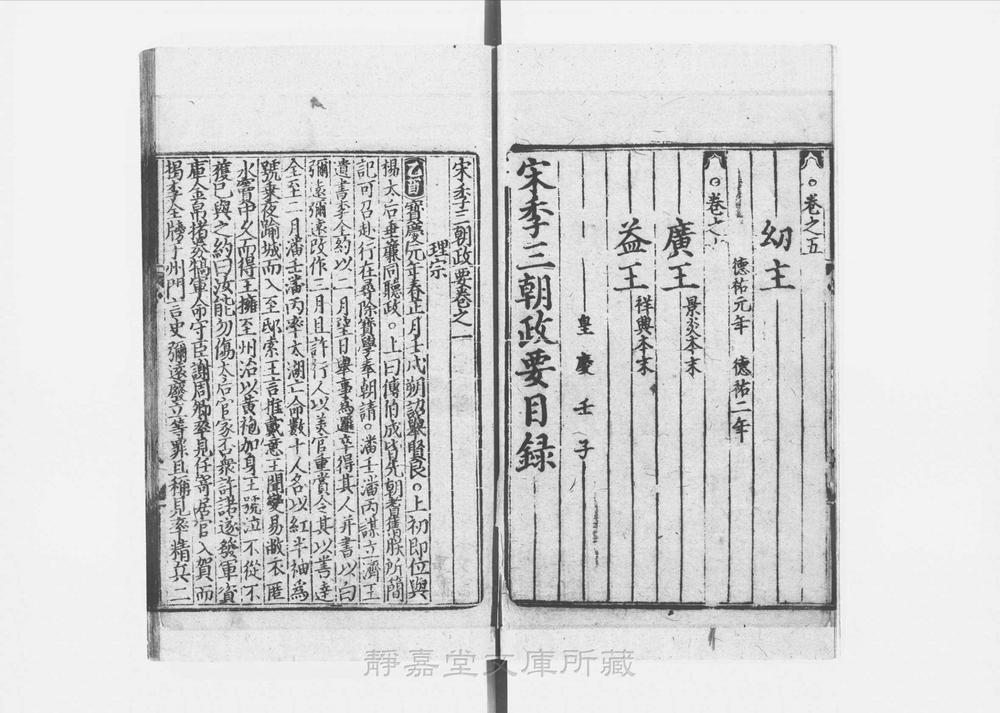 ○卷之五
幼主
德祐元年　德祐二年
○卷之
廣王
景炎本末
益王
祥興本末
皇慶壬子
宋季三朝政要目録
宋季三朝政要卷之一
理宗
乙酉寶慶元年春正月壬戌朔詔舉賢良○上初即位與
楊太后垂簾同聽政○上曰傅伯成皆先朝耆舊朕所簡
記可召赴行在尋除寶學奉朝請○潘壬潘丙謀立濟王
遺書李全約以二月望日舉事為邏卒得其人并書以白
彌遠彌遠改作三月且許行人以美官重賞令其以書達
全至二月潘壬潘丙率太湖亡命數十人各以紅半袖為
號乗夜踰城而入至邸索王言推戴意王聞變易敝衣匿
水竇中久而得王擁至州治以黄袍加身王號泣不從不
獲已與之約曰汝能勿傷太后官家否衆許諾遂發軍資
庫金帛楮劵犒軍命守臣謝周卿率見任寄居官入賀而
揭李全牓于州門言史彌遠廢立等罪且稱見率精兵二
靜嘉堂文庫所藏